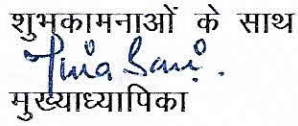 शुभकामनाओं के साथ
मुख्याध्यापिका